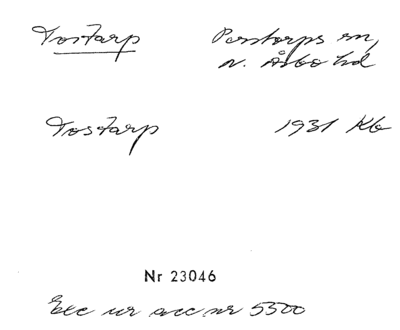 Tostarp Perstorps sn,
N. Åsbo hd
Tostarp 1931 Kb
Nr 23046
Exc ur acc nr 5500